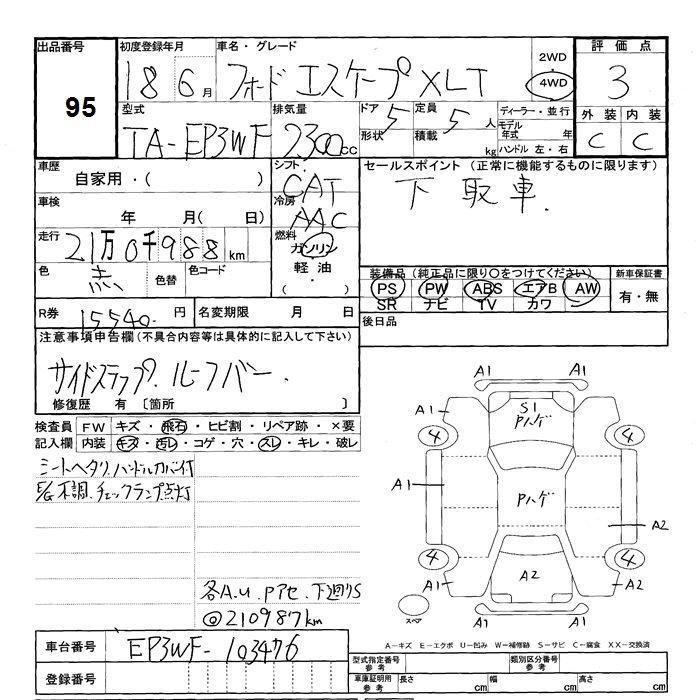 出品番号 初度登録年月 車名・グレード 評価点
95 18 6月 フォード エスケープ XLT 2WD 4WD 3
型式 排気量 ドア 5 定員 5人 ディーラー・並行 外装 内装
TA-EP3WF 2300cc 形状 積載 kg モデル年式 年 ハンドル 左・右 C C
車歴 シフト セールスポイント(正常に機能するものに限ります)
自家用・( ) CAT 下取車.
車検 年 月(日) 冷房 AAC
走行 21万0千988km 燃料 ガソリン
色 赤 色替 色コード 軽油 ・( ) 装備品(純正品に限り○をつけてください) 新車保証書
PS PW ABS エアB AW 有・無
SR ナビ TV カワ
R券 15540- 円 名変期限 月 日 後日品
注意事項申告欄(不具合内容等は具体的に記入して下さい)
サイドステップ.ルーフバー.
修復歴 有〔箇所 〕
検査員 FW キズ・飛石・ヒビ割・リペア跡・×要
記入欄 内装 キズ・汚レ・コゲ・穴・スレ・キレ・破レ
シートヘタリ.ハンドルカバー付
E/G不調.チェックランプ点灯
各A.U.Pアセ.下廻りS
@210987km
A1 A1
A1 S1 Pハゲ A1
4 4
A1 Pハゲ A2
4 4
A1 A2 A1
スペア A1 A1
A-キズ E-エクボ U-凹み W-補修跡 S-サビ C-腐食 XX-交換済
車台番号 EP3WF-103476 型式指定番号 参考 類別区分番号 参考
登録番号 車庫証明用 参考 長さ cm 幅 cm 高さ cm